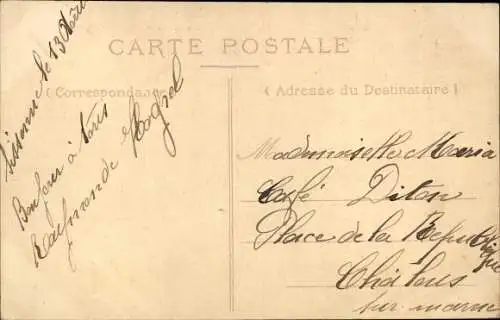 CARTE POSTALE
( Correspondance )
( Adresse du Destinataire )
Sissonne le 13
Bonjour à tous
Raymonde
Mademoiselle Maria
Café Diton
Place de la République
Châlons
sur marne